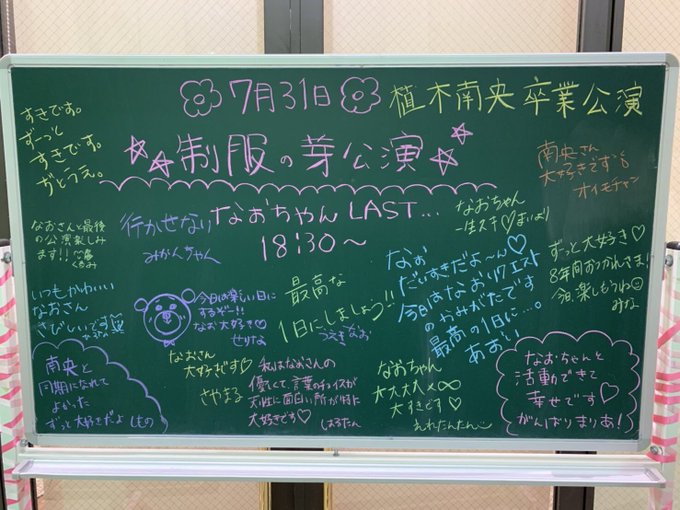 7月31日
植木南央 卒業公演
制服の芽公演
なおちゃん LAST...
18:30～
すきです。
ずーっと
すきです。
がとうえ。
南央さん
大好きです
オイモチャン
なおさんと最後
の公演楽しみ
ます!!
くるみ
行かせない
みかんちゃん
なおちゃん
一生スキ♡まいより
ずっと大好き♡
8年間おつかれさま!
今日、楽しもうね☺
みな
いつもかわいい
なおさん
さびしいです
今日は楽しい日に
するぞー!!
なお大好き♡
せりな
最高な
1日にしましょう!!
うえきなお
なお
だいすきだよ～ん♡
今日はなおリクエスト
のかみがたです
最高の1日に…。
あおい
南央と
同期になれて
よかった
ずっと大好きだよ しもの
なおさん
大好きです♡
さやまる
私はなおさんの
優しくて、言葉のチョイスが
天才的に面白い所が特に
大好きです♡
しおるたん
なおちゃん
大大大大×∞
大すきです♡
えれたんたん
なおちゃんと
活動できて
幸せです♡
がんばりまりあ!